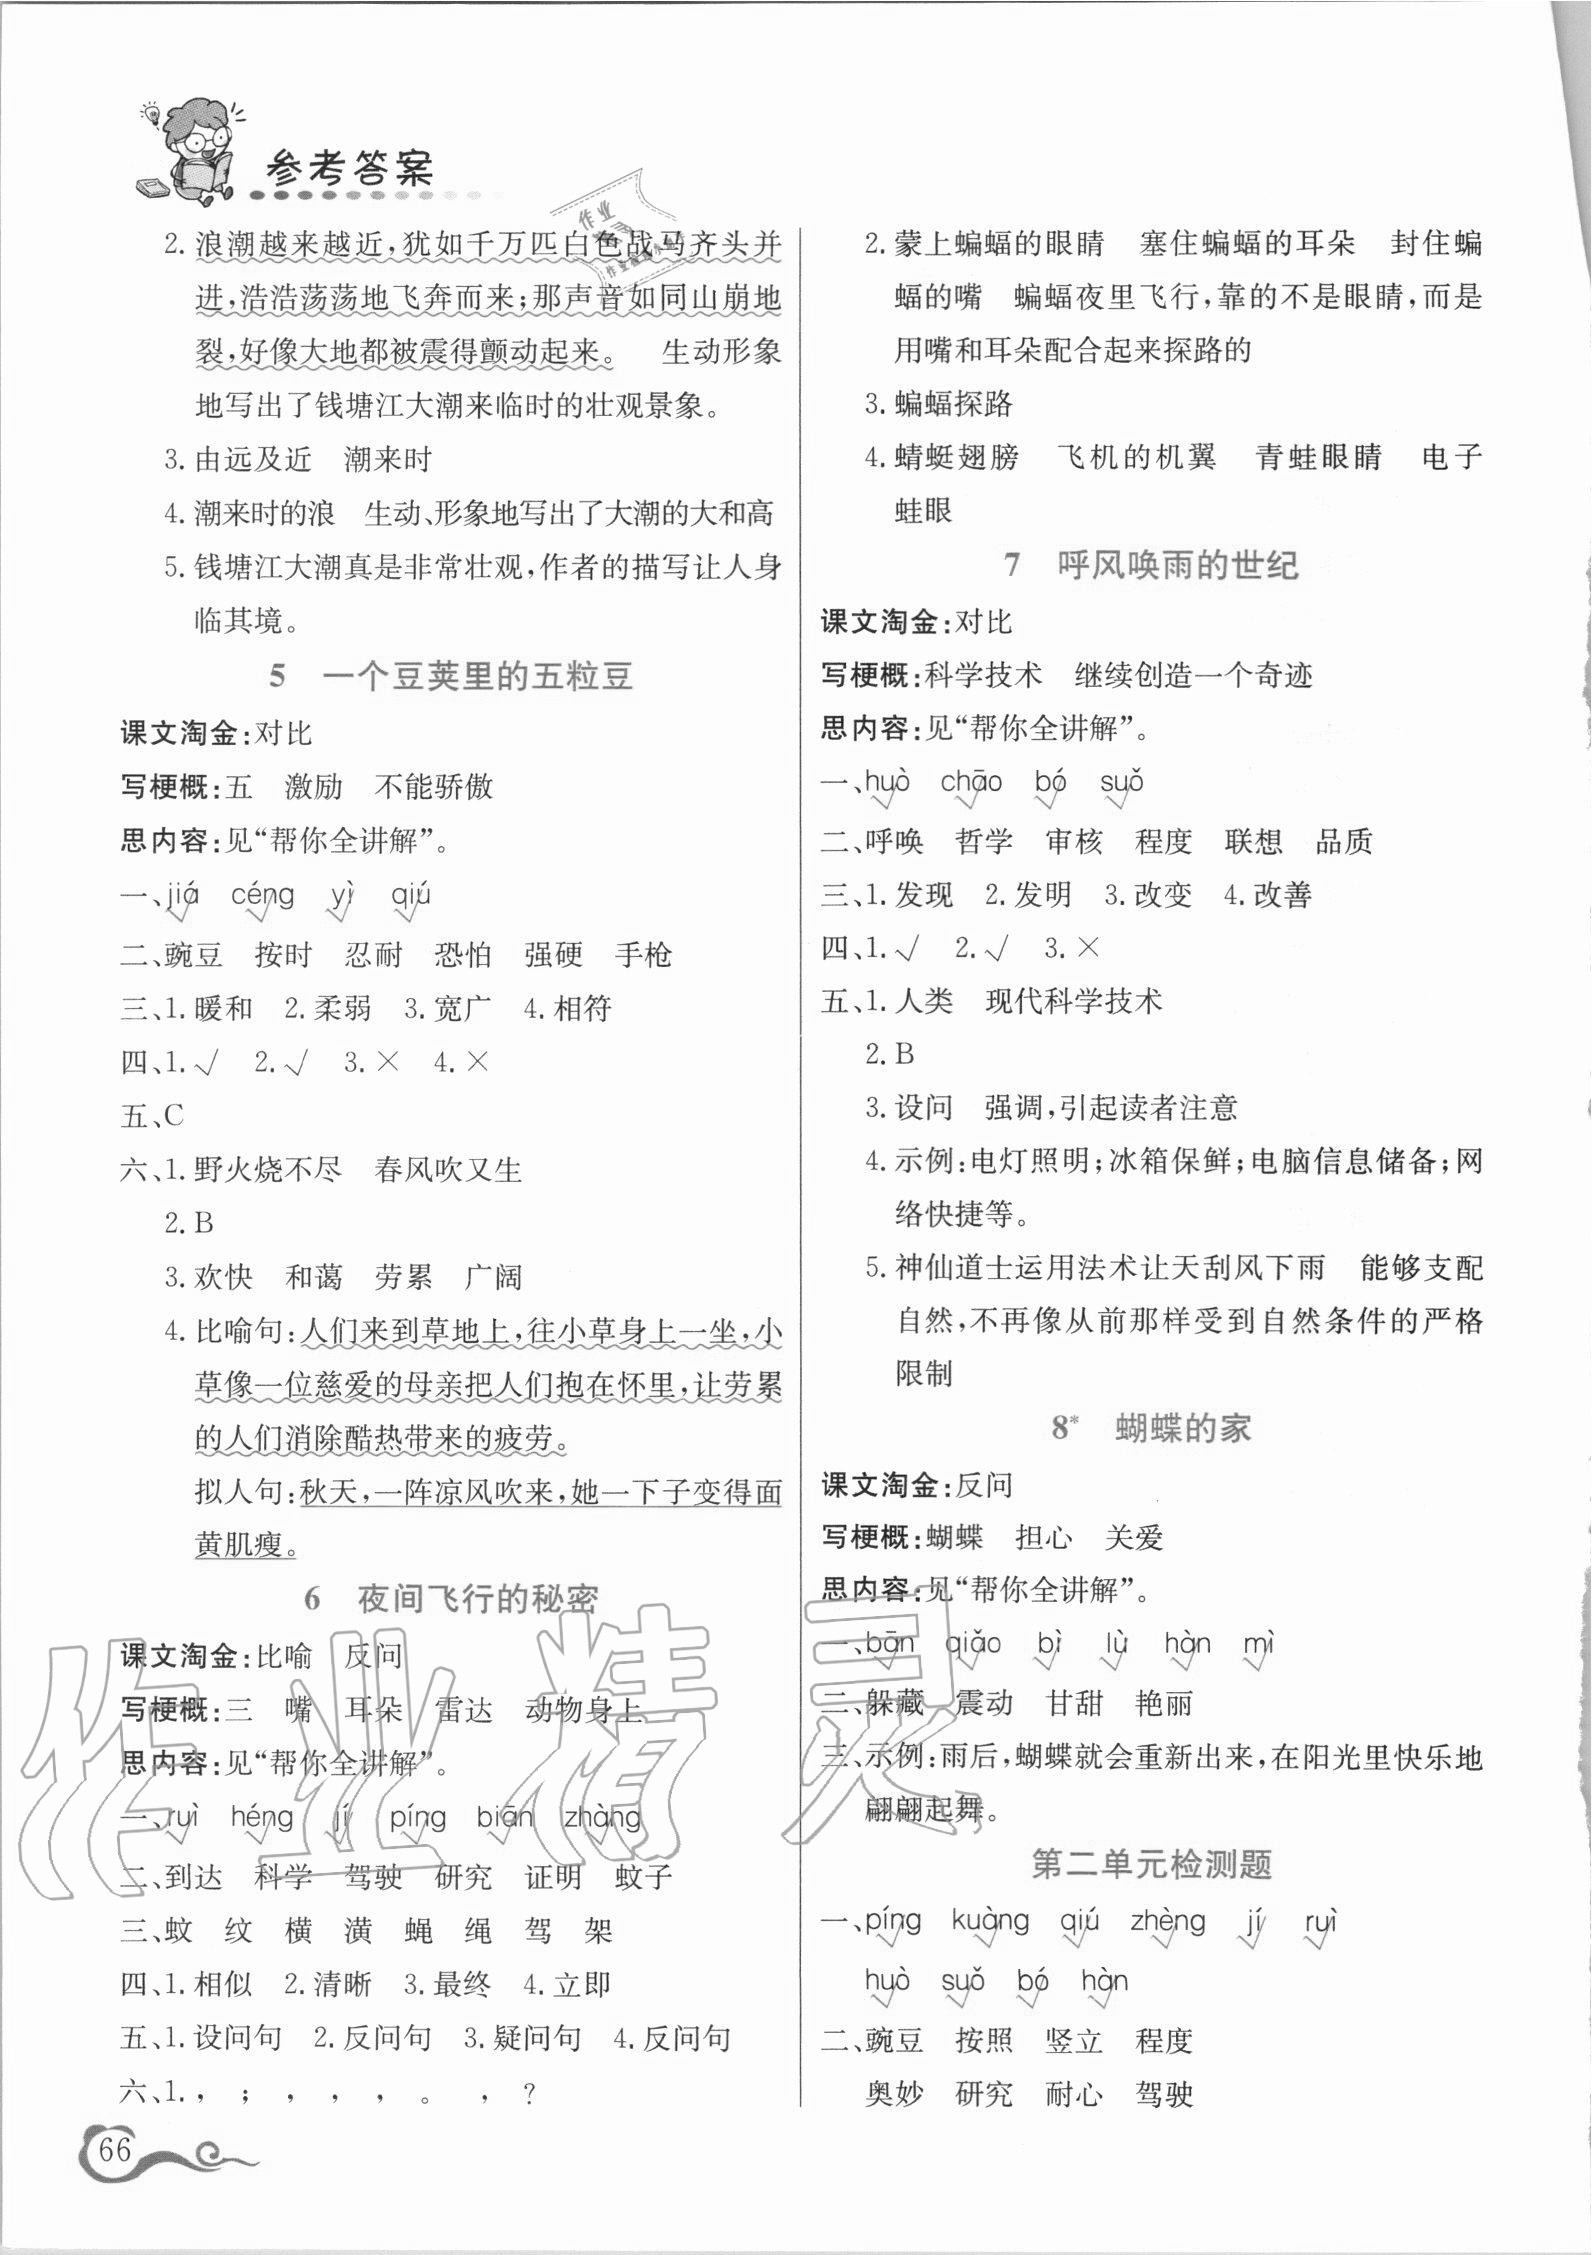 参考答案
2. 浪潮越来越近,犹如千万匹白色战马齐头并
进,浩浩荡荡地飞奔而来;那声音如同山崩地
裂,好像大地都被震得颤动起来。 生动形象
地写出了钱塘江大潮来临时的壮观景象。
3. 由远及近 潮来时
4. 潮来时的浪 生动、形象地写出了大潮的大和高
5. 钱塘江大潮真是非常壮观,作者的描写让人身
临其境。
5 一个豆荚里的五粒豆
课文淘金:对比
写梗概:五 激励 不能骄傲
思内容:见“帮你全讲解”。
一、jiá céng yì qiú
二、豌豆 按时 忍耐 恐怕 强硬 手枪
三、1. 暖和 2. 柔弱 3. 宽广 4. 相符
四、1. √ 2. √ 3. × 4. ×
五、C
六、1. 野火烧不尽 春风吹又生
2. B
3. 欢快 和蔼 劳累 广阔
4. 比喻句:人们来到草地上,往小草身上一坐,小
草像一位慈爱的母亲把人们抱在怀里,让劳累
的人们消除酷热带来的疲劳。
拟人句:秋天,一阵凉风吹来,她一下子变得面
黄肌瘦。
6 夜间飞行的秘密
课文淘金:比喻 反问
写梗概:三 嘴 耳朵 雷达 动物身上
思内容:见“帮你全讲解”。
一、ruì héng jí píng biān zhàng
二、到达 科学 驾驶 研究 证明 蚊子
三、蚊 纹 横 潢 蝇 绳 驾 架
四、1. 相似 2. 清晰 3. 最终 4. 立即
五、1. 设问句 2. 反问句 3. 疑问句 4. 反问句
六、1. , ; , , , 。 , ?
66
2. 蒙上蝙蝠的眼睛 塞住蝙蝠的耳朵 封住蝙
蝠的嘴 蝙蝠夜里飞行,靠的不是眼睛,而是
用嘴和耳朵配合起来探路的
3. 蝙蝠探路
4. 蜻蜓翅膀 飞机的机翼 青蛙眼睛 电子
蛙眼
7 呼风唤雨的世纪
课文淘金:对比
写梗概:科学技术 继续创造一个奇迹
思内容:见“帮你全讲解”。
一、huò chāo bó suǒ
二、呼唤 哲学 审核 程度 联想 品质
三、1. 发现 2. 发明 3. 改变 4. 改善
四、1. √ 2. √ 3. ×
五、1. 人类 现代科学技术
2. B
3. 设问 强调,引起读者注意
4. 示例:电灯照明;冰箱保鲜;电脑信息储备;网
络快捷等。
5. 神仙道士运用法术让天刮风下雨 能够支配
自然,不再像从前那样受到自然条件的严格
限制
8* 蝴蝶的家
课文淘金:反问
写梗概:蝴蝶 担心 关爱
思内容:见“帮你全讲解”。
一、bān qiǎo bì lù hàn mì
二、躲藏 震动 甘甜 艳丽
三、示例:雨后,蝴蝶就会重新出来,在阳光里快乐地
翩翩起舞。
第二单元检测题
一、píng kuàng qiú zhèng jí ruì
huò suǒ bó hàn
二、豌豆 按照 竖立 程度
奥妙 研究 耐心 驾驶
作业精灵
作业